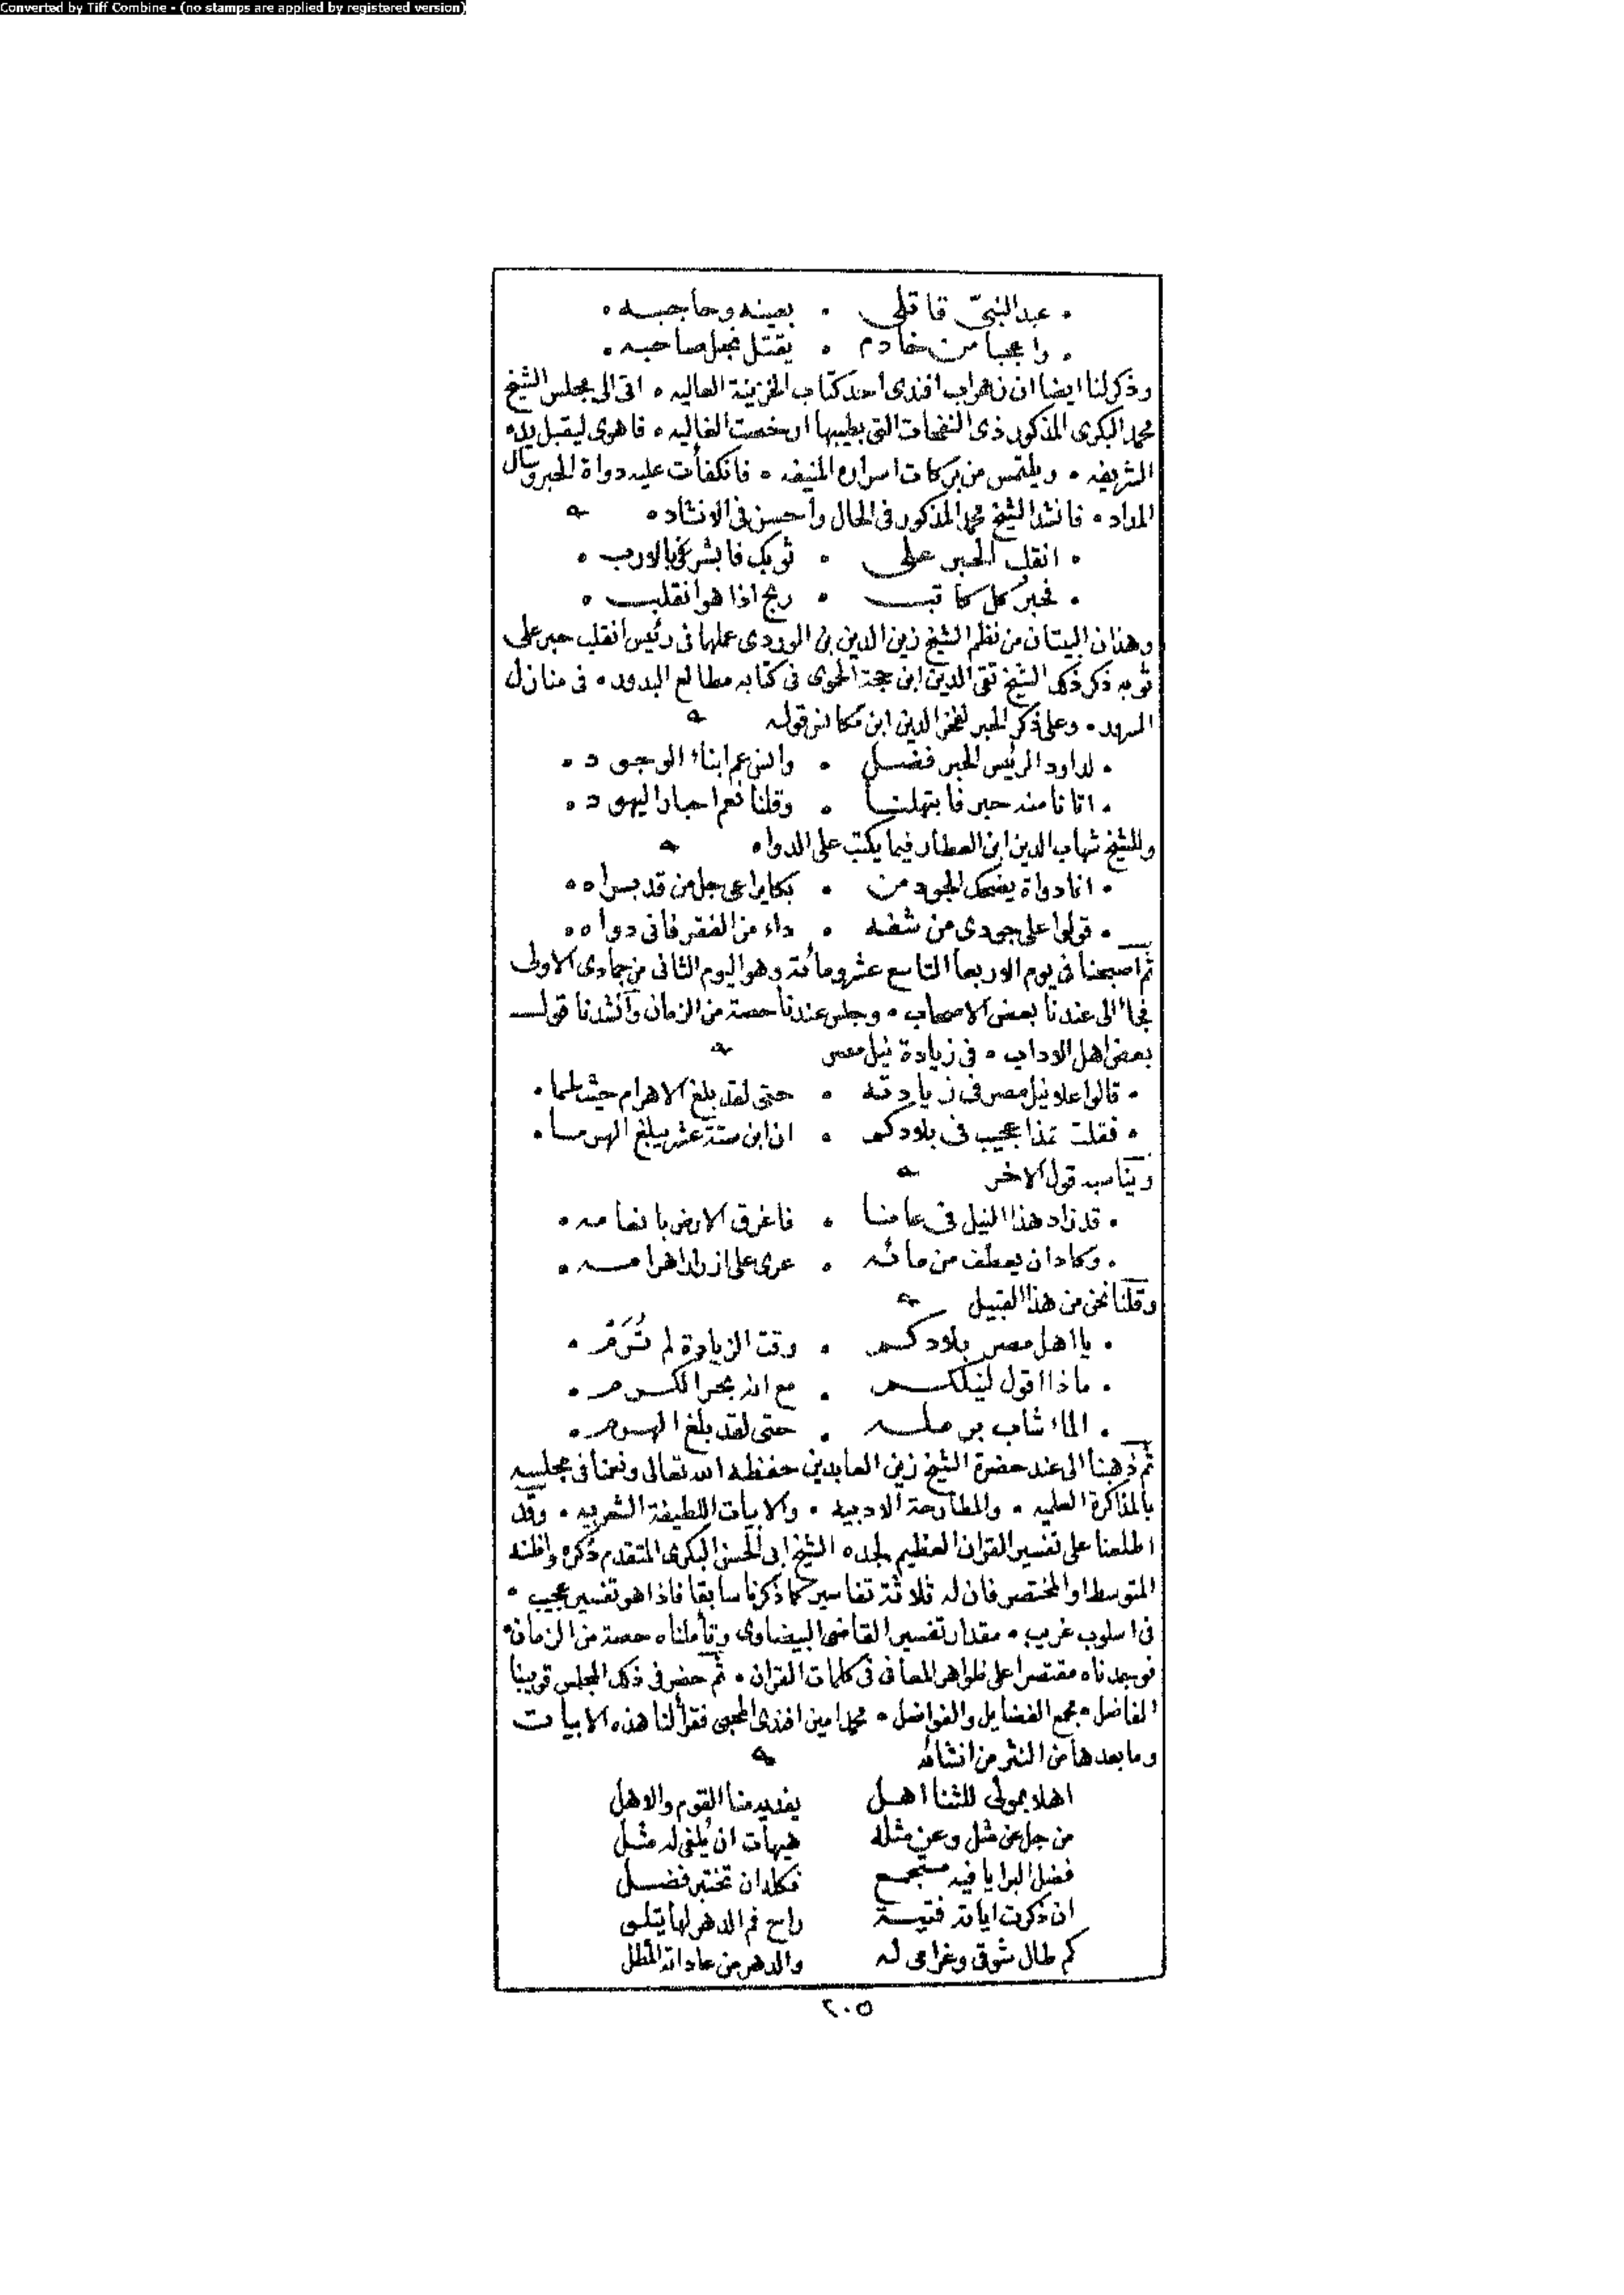 Converted by Tiff Combine - (no stamps are applied by registered version)
• عبد النبيّ قاتلى • بعينه وحاجبه •
• واعجبا من خادم • يقتل نجل صاحبه •
وذكر لنا ايضا ان زهراب افندى احد كتاب الخزينة العاليه • اتى الى مجلس الشيخ
محمد البكرى المذكور ذى النفحات التى بطيبها ارخصت الغاليه • فاهوى ليقبل يده
الشريفه • ويلتمس من بركات اسراره المنيفه • فانكفأت عليه دواة الحبر وسال
المداد • فانشد الشيخ محمد المذكور فى الحال وأحسن فى الانشاد •
• انقلب الحبر على • ثوبك فابشر يا
• فحبر كل كاتب • ربح اذا هو انقلب •
وهذان البيتان من نظم الشيخ زين الدين بن الوردى عملها فى رئيس انقلب حبر على
ثوبه ذكر ذلك الشيخ تقى الدين ابن حجة الحموى فى كتابه مطالع البدور • فى منازل
السرور • وعلى ذكر الحبر لفخر الدين ابن مكانس قوله
• لداود الرئيس الحبر فضل • ابناء الوجود •
• اتانا منه حبر فابتهلنا • وقلنا نعم احبار اليهود •
وللشيخ شهاب الدين ابن العطار فيما يكتب على الدواه
• انا دواة يضحك الجود من • بكا يراعى جل من قد براه •
• قولوا على جودى من شفه • داء من الفقر فانى دواه •
ثم اصبحنا فى يوم الاربعا التاسع عشر ومائة وهو اليوم الثانى من جمادى الاولى
فجاء الى عندنا بعض الاصحاب • وجلس عندنا حصة من الزمان وأنشدنا قول
بعض اهل الاداب • فى زيادة نيل مصر
• قالوا علا نيل مصر فى زيادته • حتى لقد بلغ الاهرام حين طما •
• فقلت هذا عجيب فى بلادكم • ان ابن ستة عشر يبلغ الهرما •
ويناسبه قول الاخر
• قد زاد هذا النيل فى عامنا • فاغرق الارض بانعامه •
• وكاد ان يعطف من مائه • عرى على ازرار اهرامه •
وقلنا نحن من هذا القبيل
• يا اهل مصر بلادكم • وقت الزيادة لم تُرَم •
• ماذا اقول لنيلكم • مع انه بحر الكرم •
• الماء شاب برمله • حتى لقد بلغ الهرم •
ثم ذهبنا الى عند حضرة الشيخ زين العابدين حفظه الله تعالى ونعمنا فى مجلسه
بالمذاكرة العلميه • والمطارحة الادبية • والابيات اللطيفة الشعريه • وقد
اطلعنا على تفسير القران العظيم لجده الشيخ ابى الحسن البكرى المتقدم ذكره واظنه
المتوسط او المختصر فان له ثلاثة تفاسير كما ذكرنا سابقا فاذا هو تفسير عجيب •
فى اسلوب غريب • مقدار تفسير القاضى البيضاوى وتأملناه حصة من الزمان •
فوجدناه مقتصرا على ظواهر المعانى فى كلمات القران • ثم حضر فى ذلك المجلس قريبنا
الفاضل • مجمع الفضايل والفواضل • محمد امين افندى المحبى فقرأ لنا هذه الابيات
وما بعدها من النثر من انشائه
اهلا بمولى للثنا اهل يفديه منا القوم والاهل
من جل عن مثل وعن مثله هيهات ان يُلفى له مثل
فضل البرايا فيه مستجمع فكل ان تختبر فضل
ان ذكرت اياته فتية راح فم الدهر لها يتلو
كم طال شوقى وغرامى له والدهر من عاداته المطل
٢٠٥